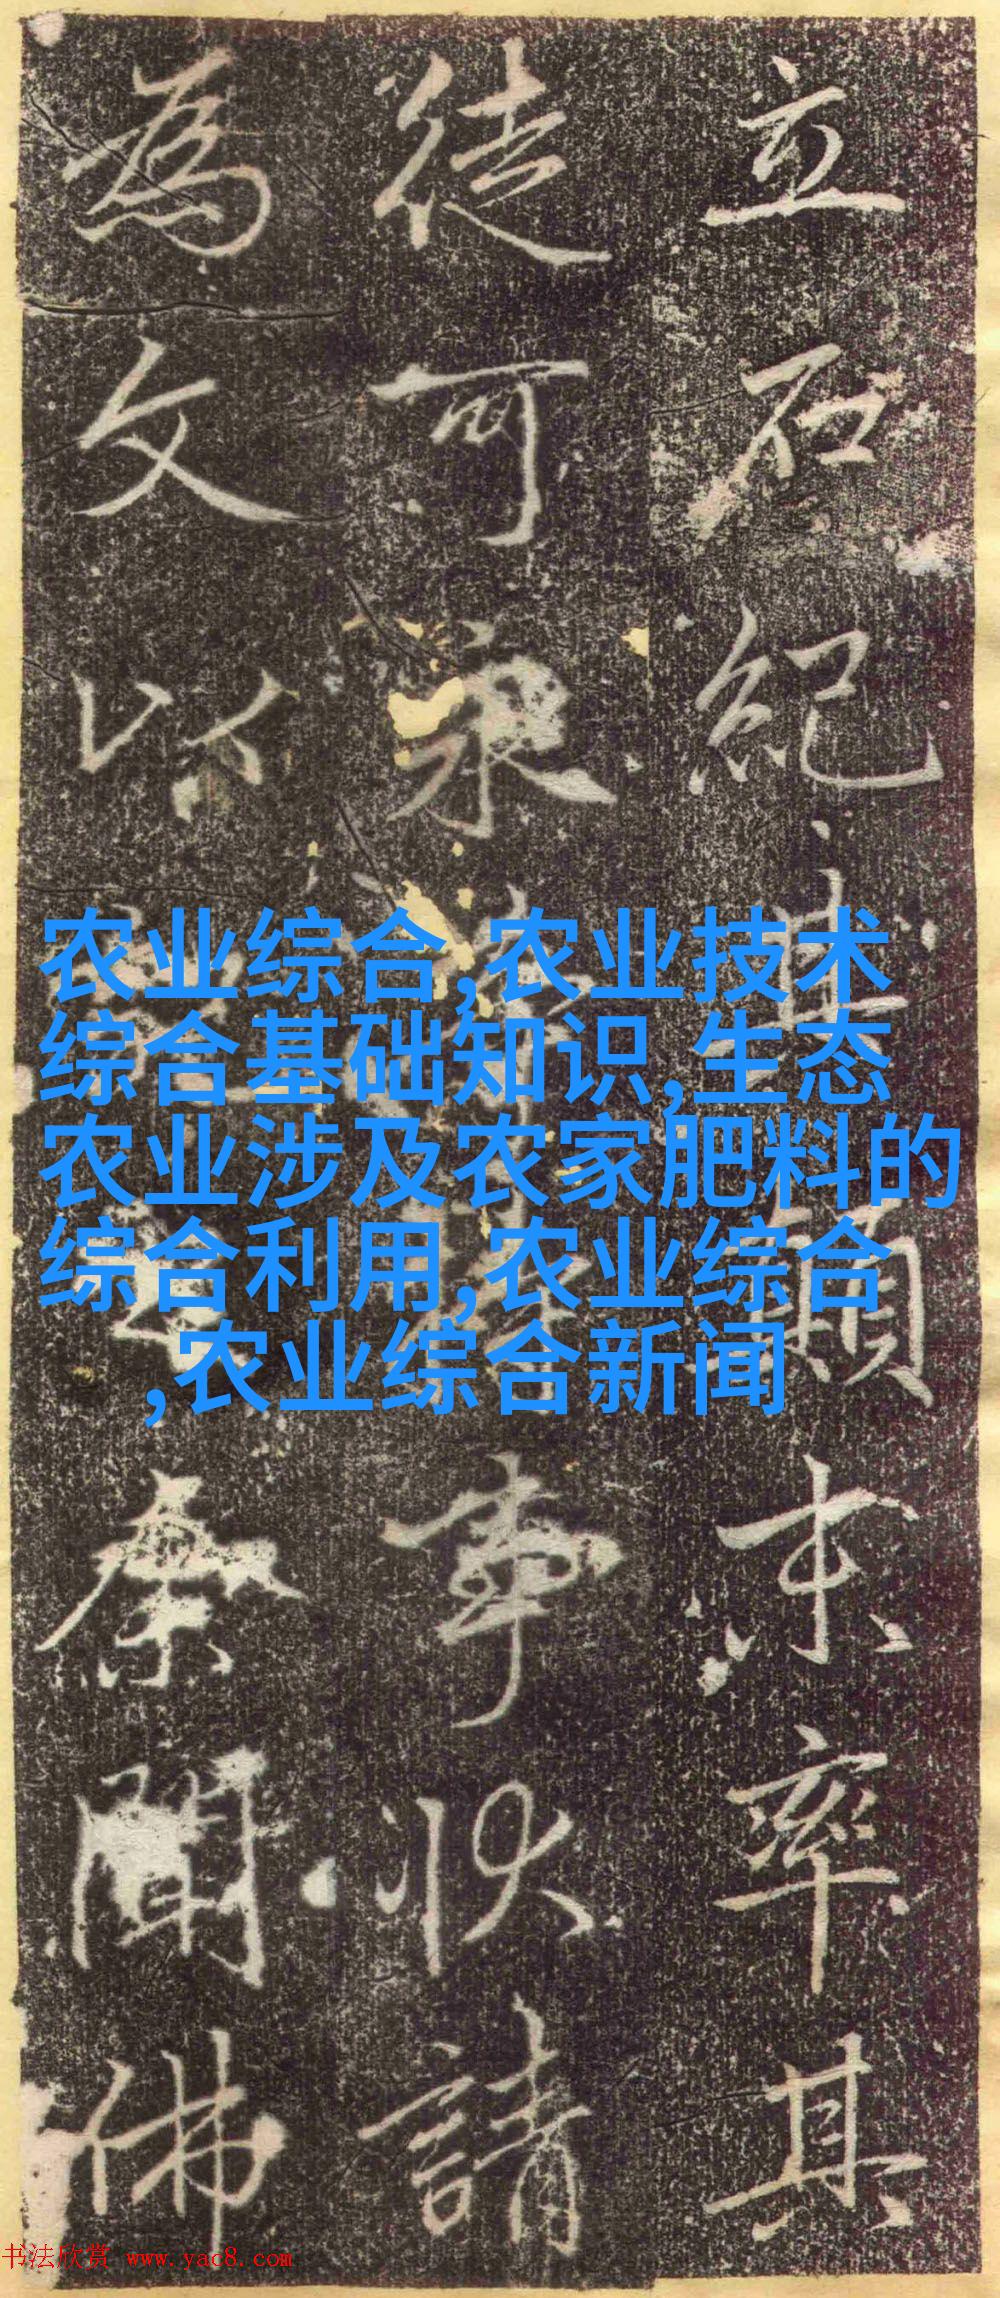 立石紀其
願末率其
徒可永
事状請
為文以
余聞佛
农业综合,农业技术
综合基础知识,生态
农业涉及农家肥料的
综合利用,农业综合
,农业综合新闻
书法欣赏 www.yac8.com